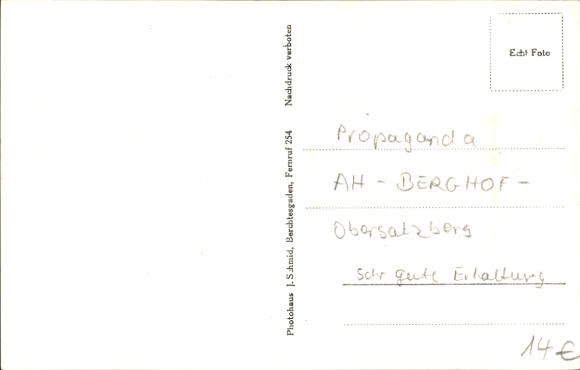 Photohaus J. Schmid, Berchtesgaden, Fernruf 254 Nachdruck verboten
Echt Foto
Propaganda
AH - BERGHOF -
Obersalzberg
Sehr gute Erhaltung
14 €